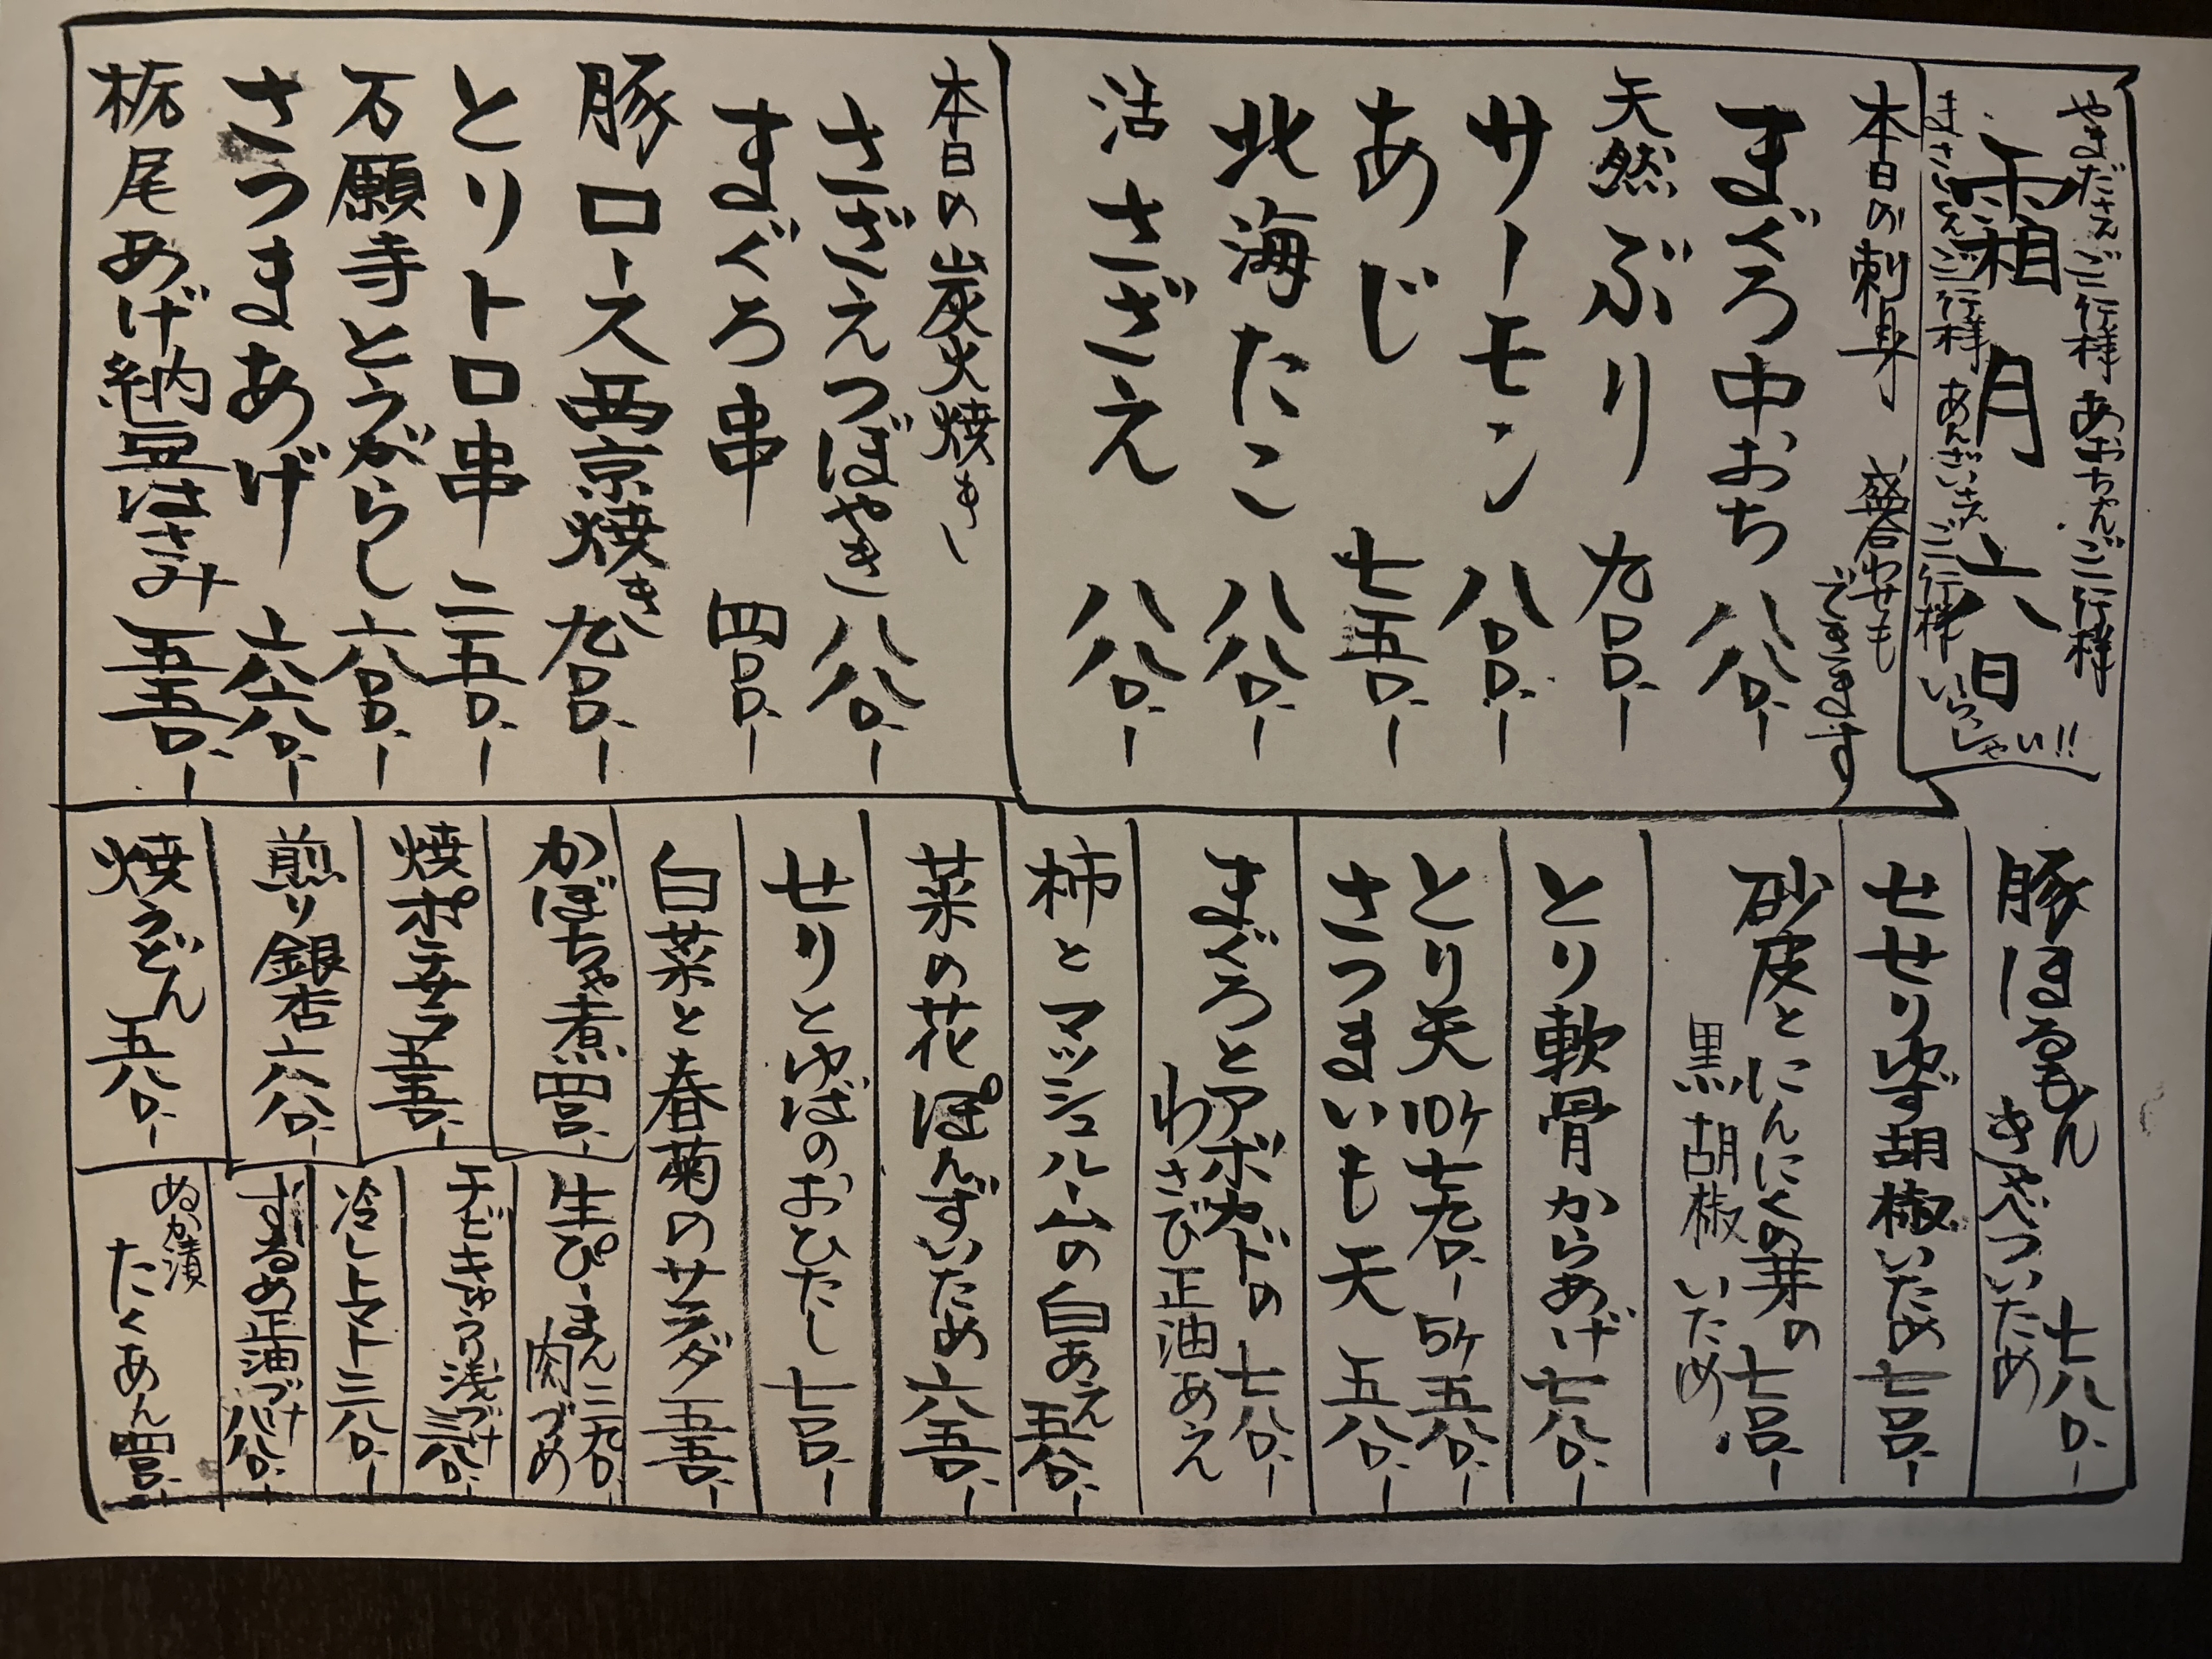 やまださんご一行様 あおちゃんご一行様
霜月六日
まさこさんご一行様 あんざいさんご一行様 いらっしゃい!!
本日の刺身 盛合わせも
できます
まぐろ中おち 八八〇.ー
天然ぶり 九〇〇.ー
サーモン 八〇〇.ー
あじ 七五〇.ー
北海たこ 八八〇.ー
活さざえ 八八〇.ー
本日の炭火焼きし
さざえつぼやき 八八〇.ー
まぐろ串 四〇〇.ー
豚ロース西京焼き 九〇〇.ー
とりトロ串 二五〇.ー
万願寺とうがらし 六八〇.ー
さつまあげ 六八〇.ー
栃尾あげ納豆はさみ 五五〇.ー
豚ほるもん
きゃべついため 七八〇.ー
せせりゆず胡椒いため 七〇〇.ー
砂皮とにんにくの芽の
黒胡椒いため 七〇〇.ー
とり軟骨からあげ 七八〇.ー
とり天 10ケ 七九〇.ー 5ケ 五八〇.ー
さつまいも天 五八〇.ー
まぐろとアボカドの 七八〇.ー
わさび正油あえ
柿とマッシュルームの白あえ 五八〇.ー
菜の花ぽんずいため 六五〇.ー
せりとゆばのおひたし 七〇〇.ー
白菜と春菊のサラダ 五五〇.ー
かぼちゃ煮 四〇〇.ー
焼ポテサラ 五五〇.ー
煎り銀杏 六八〇.ー
焼うどん 五八〇.ー
生ぴーまん 三九〇.ー
肉づめ
チビきゅうり浅づけ 三八〇.ー
冷しトマト 三八〇.ー
するめ正油づけ 八八〇.ー
ぬか漬
たくあん 四〇〇.ー